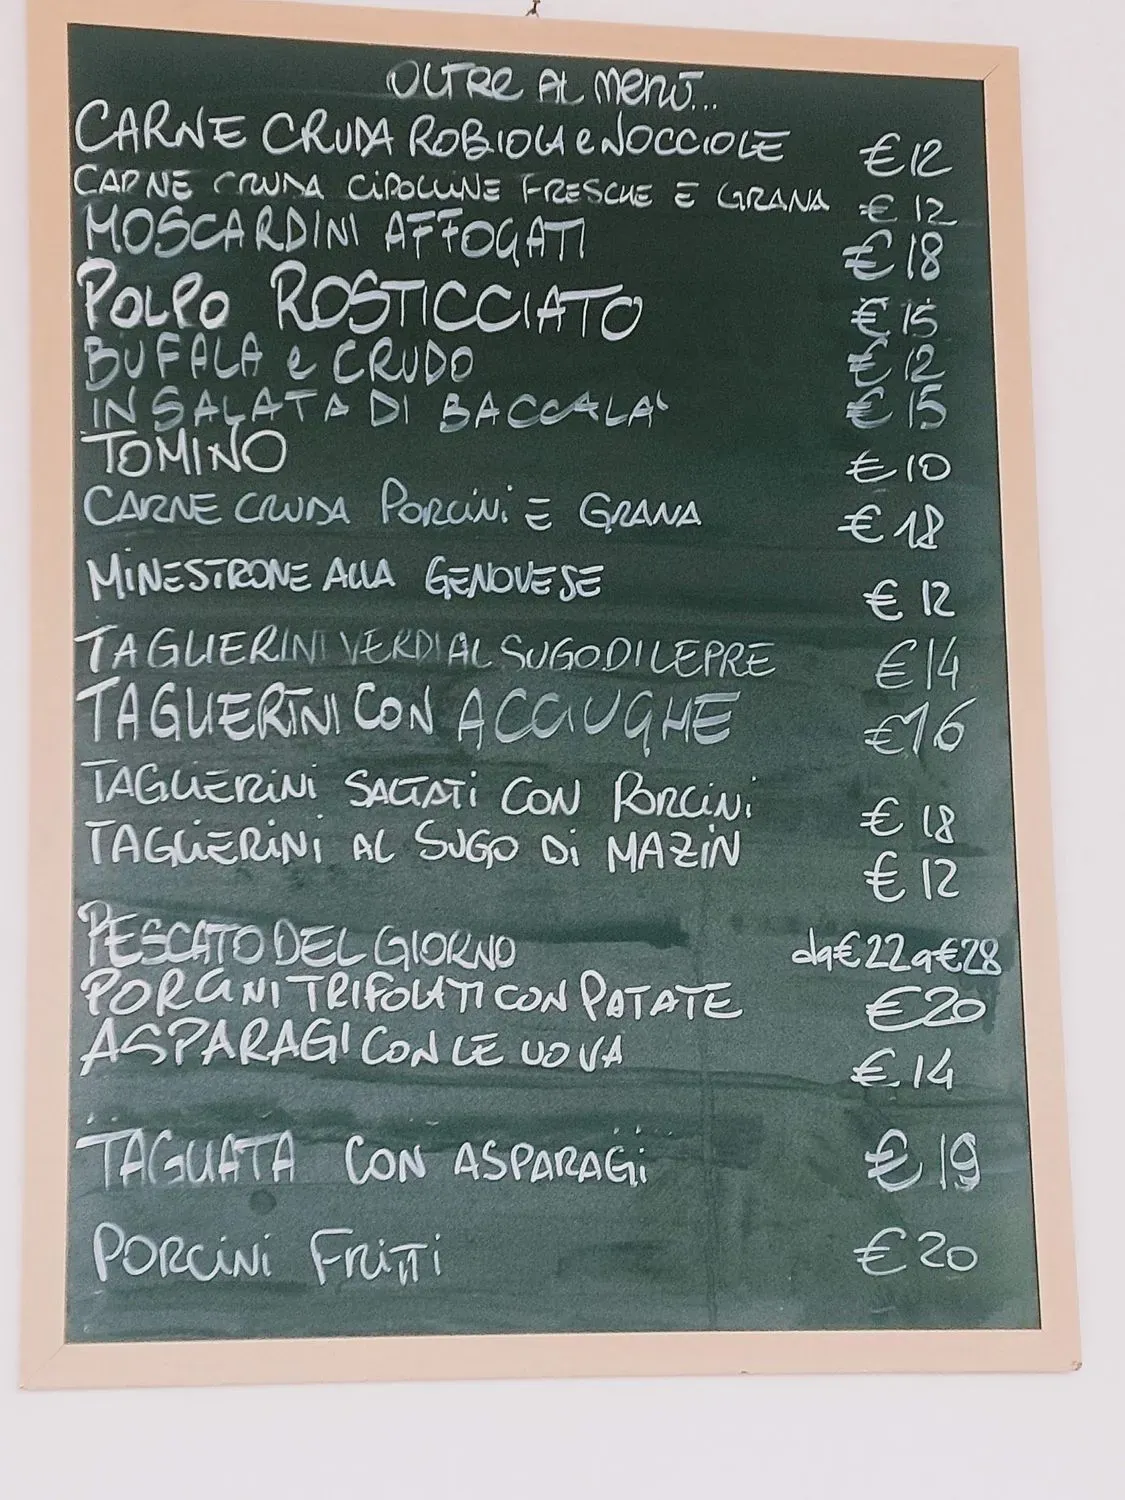 OLTRE AL MENÙ...
CARNE CRUDA ROBIOLA e NOCCIOLE €12
CARNE CRUDA CIPOLLINE FRESCHE E GRANA €12
MOSCARDINI AFFOGATI €18
POLPO ROSTICCIATO €15
BUFALA e CRUDO €12
INSALATA DI BACCALA' €15
TOMINO €10
CARNE CRUDA PORCINI E GRANA €18
MINESTRONE ALLA GENOVESE €12
TAGLIERINI VERDI AL SUGO DI LEPRE €14
TAGLIERINI CON ACCIUGHE €16
TAGLIERINI SALTATI CON PORCINI €18
TAGLIERINI AL SUGO DI MAZIN €12
PESCATO DEL GIORNO da €22 a €28
PORCINI TRIFOLATI CON PATATE €20
ASPARAGI CON LE UOVA €14
TAGLIATA CON ASPARAGI €19
PORCINI FRITTI €20